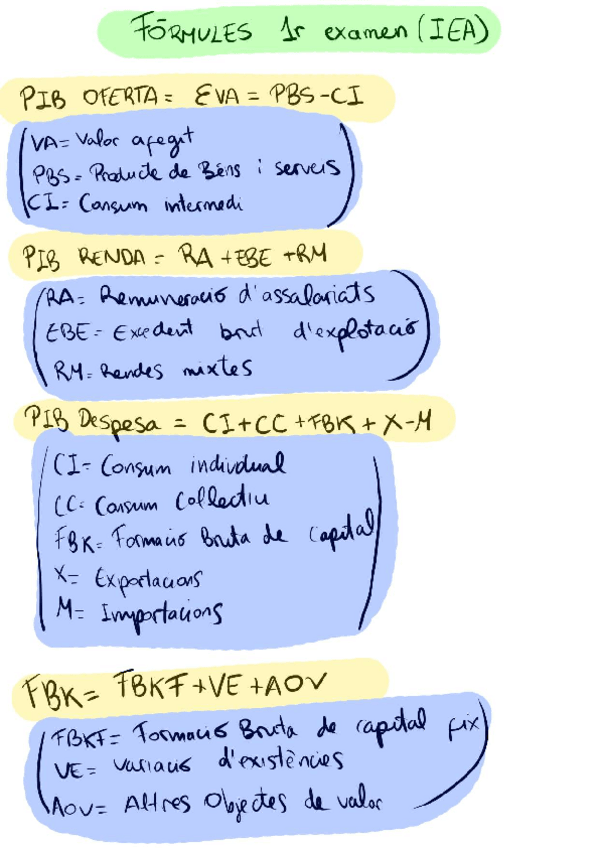 FÓRMULES 1r examen (IEA)
PIB OFERTA = ΣVA = PBS-CI
(VA= Valor afegit
PBS = Producte de Béns i serveis
CI= Consum intermedi)
PIB RENDA = RA + EBE + RM
(RA= Remuneració d'assalariats
EBE = Excedent brut d'explotació
RM= Rendes mixtes)
PIB Despesa = CI+CC+FBK+X-M
(CI= Consum individual
CC= Consum Collectiu
FBK= Formació Bruta de Capital
X= Exportacions
M= Importacions)
FBK= FBKF+VE+AOV
(FBKF= Formació Bruta de capital fix
VE= Variació d'existències
AOV= Altres Objectes de valor)